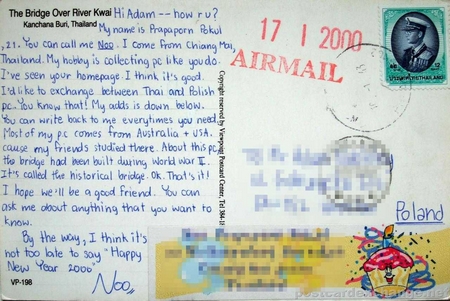 The Bridge Over River Kwai
Kanchana Buri, Thailand
Hi Adam -- how r u?
My name is Prapaporn Pokul
, 21. You can call me Noo. I come from Chiang Mai,
Thailand. My hobby is collecting pc like you do.
I've seen your homepage. I think it's good.
I'd like to exchange between Thai and Polish
pc. You know that! My adds is down below.
You can write back to me everytimes you need.
Most of my pc comes from Australia + USA.
cause my friends studied there. About this pc,
the bridge had been built during world war II.
It's called the historical bridge. Ok. That's it!
I hope we'll be a good friend. You can
ask me about anything that you want to
know.
By the way, I think it's
not too late to say "Happy
New Year 2000"
Noo
VP-198
Copyright reserved by Viewpoint Postcard Center, Tel
17 1 2000
AIRMAIL
ประเทศไทย THAILAND
Poland
postcard